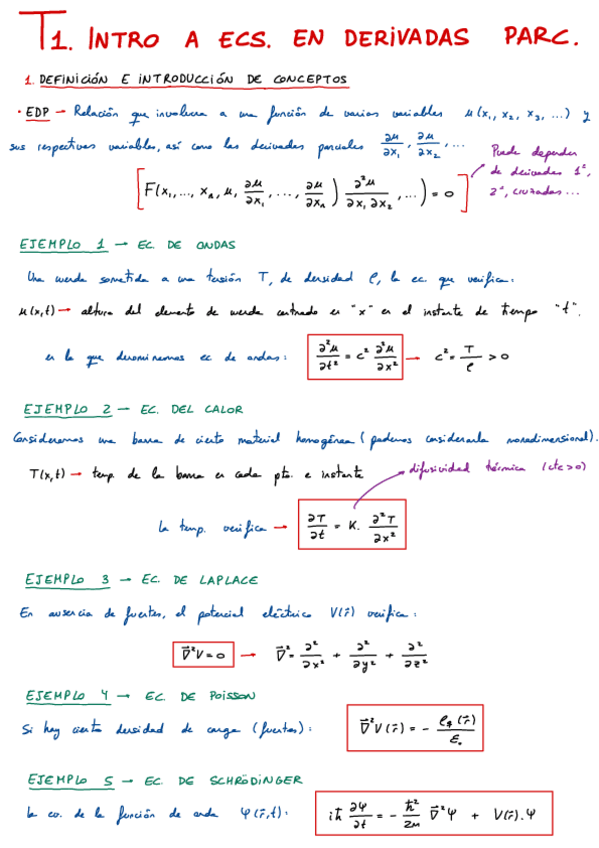 T1. INTRO A ECS. EN DERIVADAS PARC.
1. DEFINICIÓN E INTRODUCCIÓN DE CONCEPTOS
• EDP → Relación que involucra a una función de varias variables u(x₁, x₂, x₃, ...) y
sus respectivas variables, así como las derivadas parciales ∂u/∂x₁, ∂u/∂x₂, ...
Puede depender de derivadas 1ª, 2ª, cruzadas ...
[F(x₁, ..., xₙ, u, ∂u/∂x₁, ..., ∂u/∂xₙ) ∂²u/∂x₁∂x₂, ...) = 0]
EJEMPLO 1 → EC. DE ONDAS
Una cuerda sometida a una tensión T, de densidad ρ, la ec. que verifica:
u(x,t) → altura del elemento de cuerda centrado en "x" en el instante de tiempo "t".
es la que denominamos ec de ondas: ∂²u/∂t² = c² ∂²u/∂x² → c² = T/ρ > 0
EJEMPLO 2 — EC. DEL CALOR
Consideramos una barra de cierto material homogénea (podemos considerarla monodimensional).
T(x,t) → temp. de la barra en cada pto. e instante
difusividad térmica (cte > 0)
la temp. verifica → ∂T/∂t = K. ∂²T/∂x²
EJEMPLO 3 → EC. DE LAPLACE
En ausencia de fuentes, el potencial eléctrico V(r⃗) verifica:
∇⃗²V = 0 → ∇⃗² = ∂²/∂x² + ∂²/∂y² + ∂²/∂z²
EJEMPLO 4 → EC. DE POISSON
Si hay cierta densidad de carga (fuentes): ∇⃗²V(r⃗) = - ρq(r⃗)/ε₀
EJEMPLO 5 → EC. DE SCHRÖDINGER
la ec. de la función de onda Ψ(r⃗,t): iħ ∂Ψ/∂t = - ħ²/2m ∇⃗²Ψ + V(r⃗).Ψ